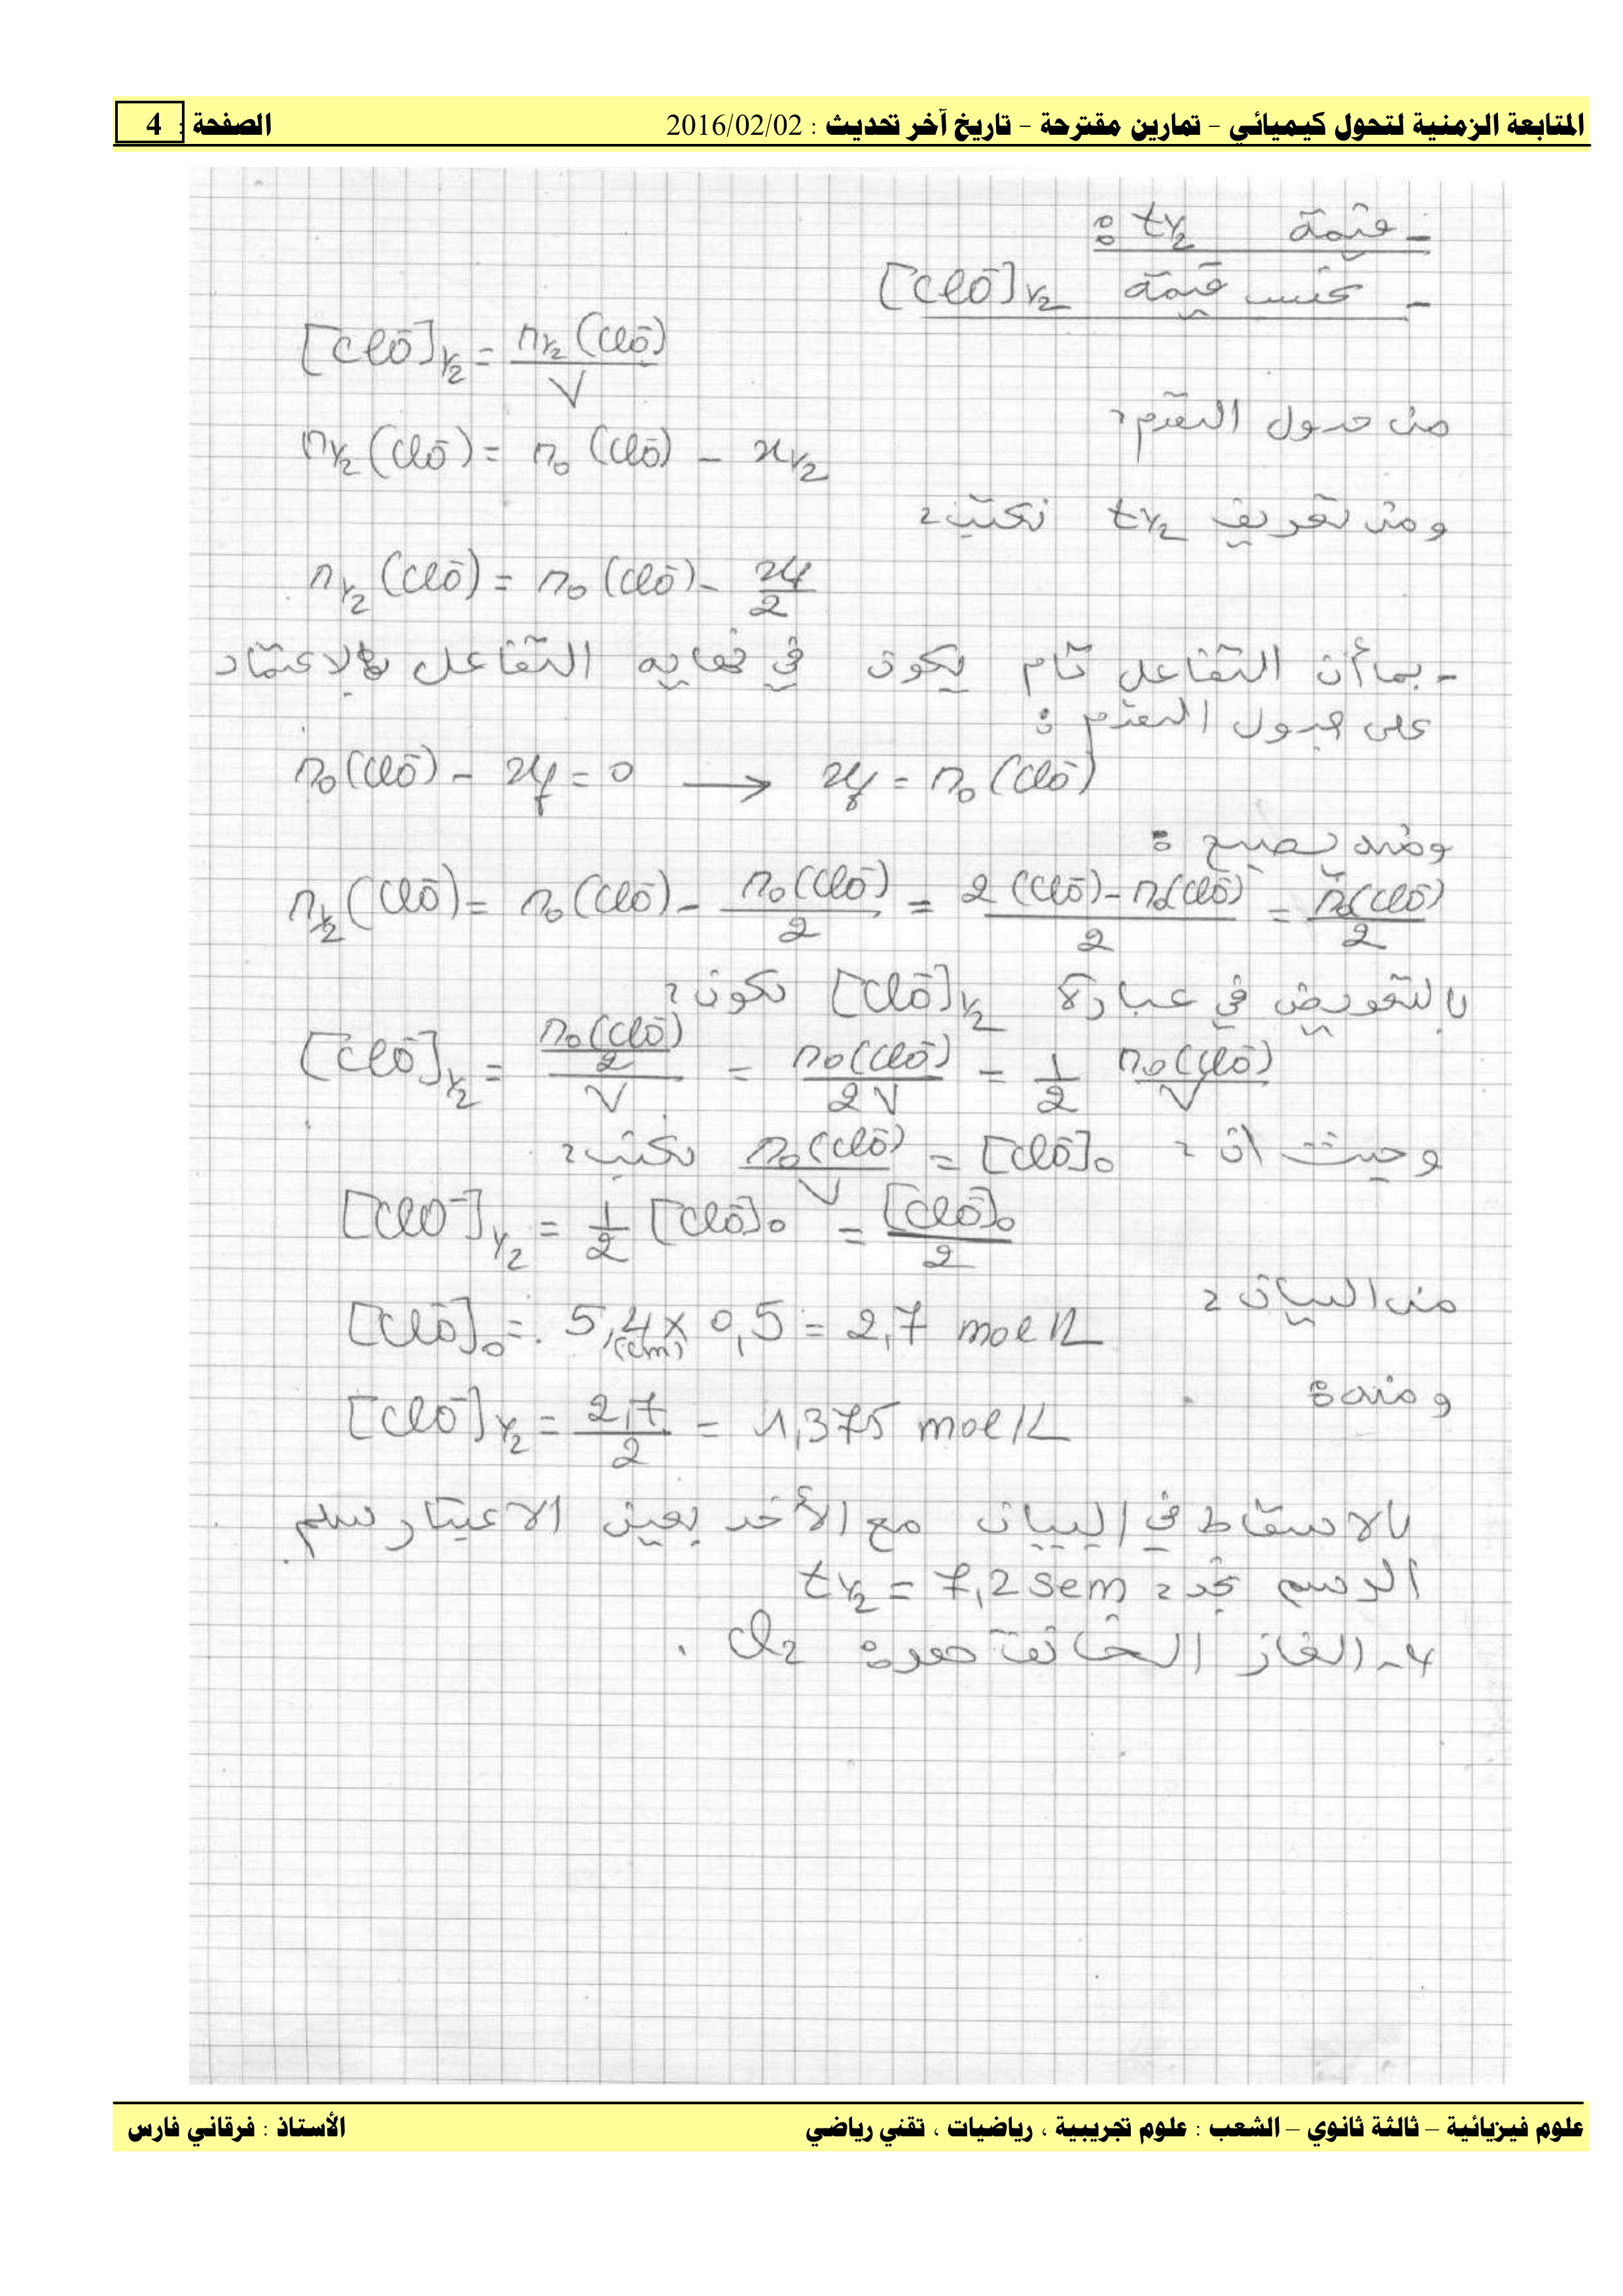 المتابعة الزمنية لتحول كيميائي – تمارين مقترحة – تاريخ آخر تحديث : 2016/02/02 الصفحة : 4
- قيمة t1/2 :
- نحسب قيمة [ClO⁻]1/2
[ClO⁻]1/2 = n1/2(ClO⁻) / V
من جدول التقدم :
n1/2(ClO⁻) = n0(ClO⁻) - x1/2
ومن تعريف t1/2 نكتب :
n1/2(ClO⁻) = n0(ClO⁻) - xf/2
- بما أن التفاعل تام يكون في نهاية التفاعل بالاعتماد
على جدول التقدم :
n0(ClO⁻) - xf = 0 → xf = n0(ClO⁻)
ومنه يصبح :
n1/2(ClO⁻) = n0(ClO⁻) - n0(ClO⁻)/2 = 2(ClO⁻) - n0(ClO⁻) / 2 = n0(ClO⁻)/2
بالتعويض في عبارة [ClO⁻]1/2 نكون :
[ClO⁻]1/2 = (n0(ClO⁻)/2) / V = n0(ClO⁻)/2V = 1/2 n0(ClO⁻)/V
وحيث أن : n0(ClO⁻)/V = [ClO⁻]0 نكتب :
[ClO⁻]1/2 = 1/2 [ClO⁻]0 = [ClO⁻]0/2
من البيان :
[ClO⁻]0 = 5,4 (cm) × 0,5 = 2,7 mol/L
ومنه :
[ClO⁻]1/2 = 2,7/2 = 1,375 mol/L
بالاسقاط في البيان مع الأخذ بعين الاعتبار سلم
الرسم نجد : t1/2 = 7,2 sem
4- الغاز الخانق هو : Cl2 .
علوم فيزيائية – ثالثة ثانوي – الشعب : علوم تجريبية ، رياضيات ، تقني رياضي الأستاذ : فرقاني فارس